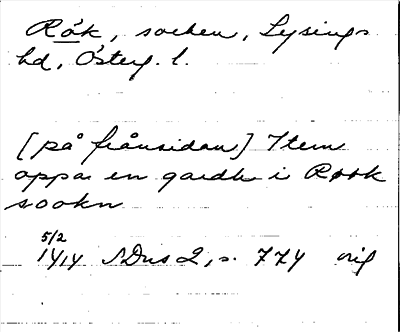 Rök, socken, Lysings
hd, Österg. l.
[på frånsidan] Item
oppa en gardh i Røøk
sookn
5/2
1414 SDns 2, s. 774 orig